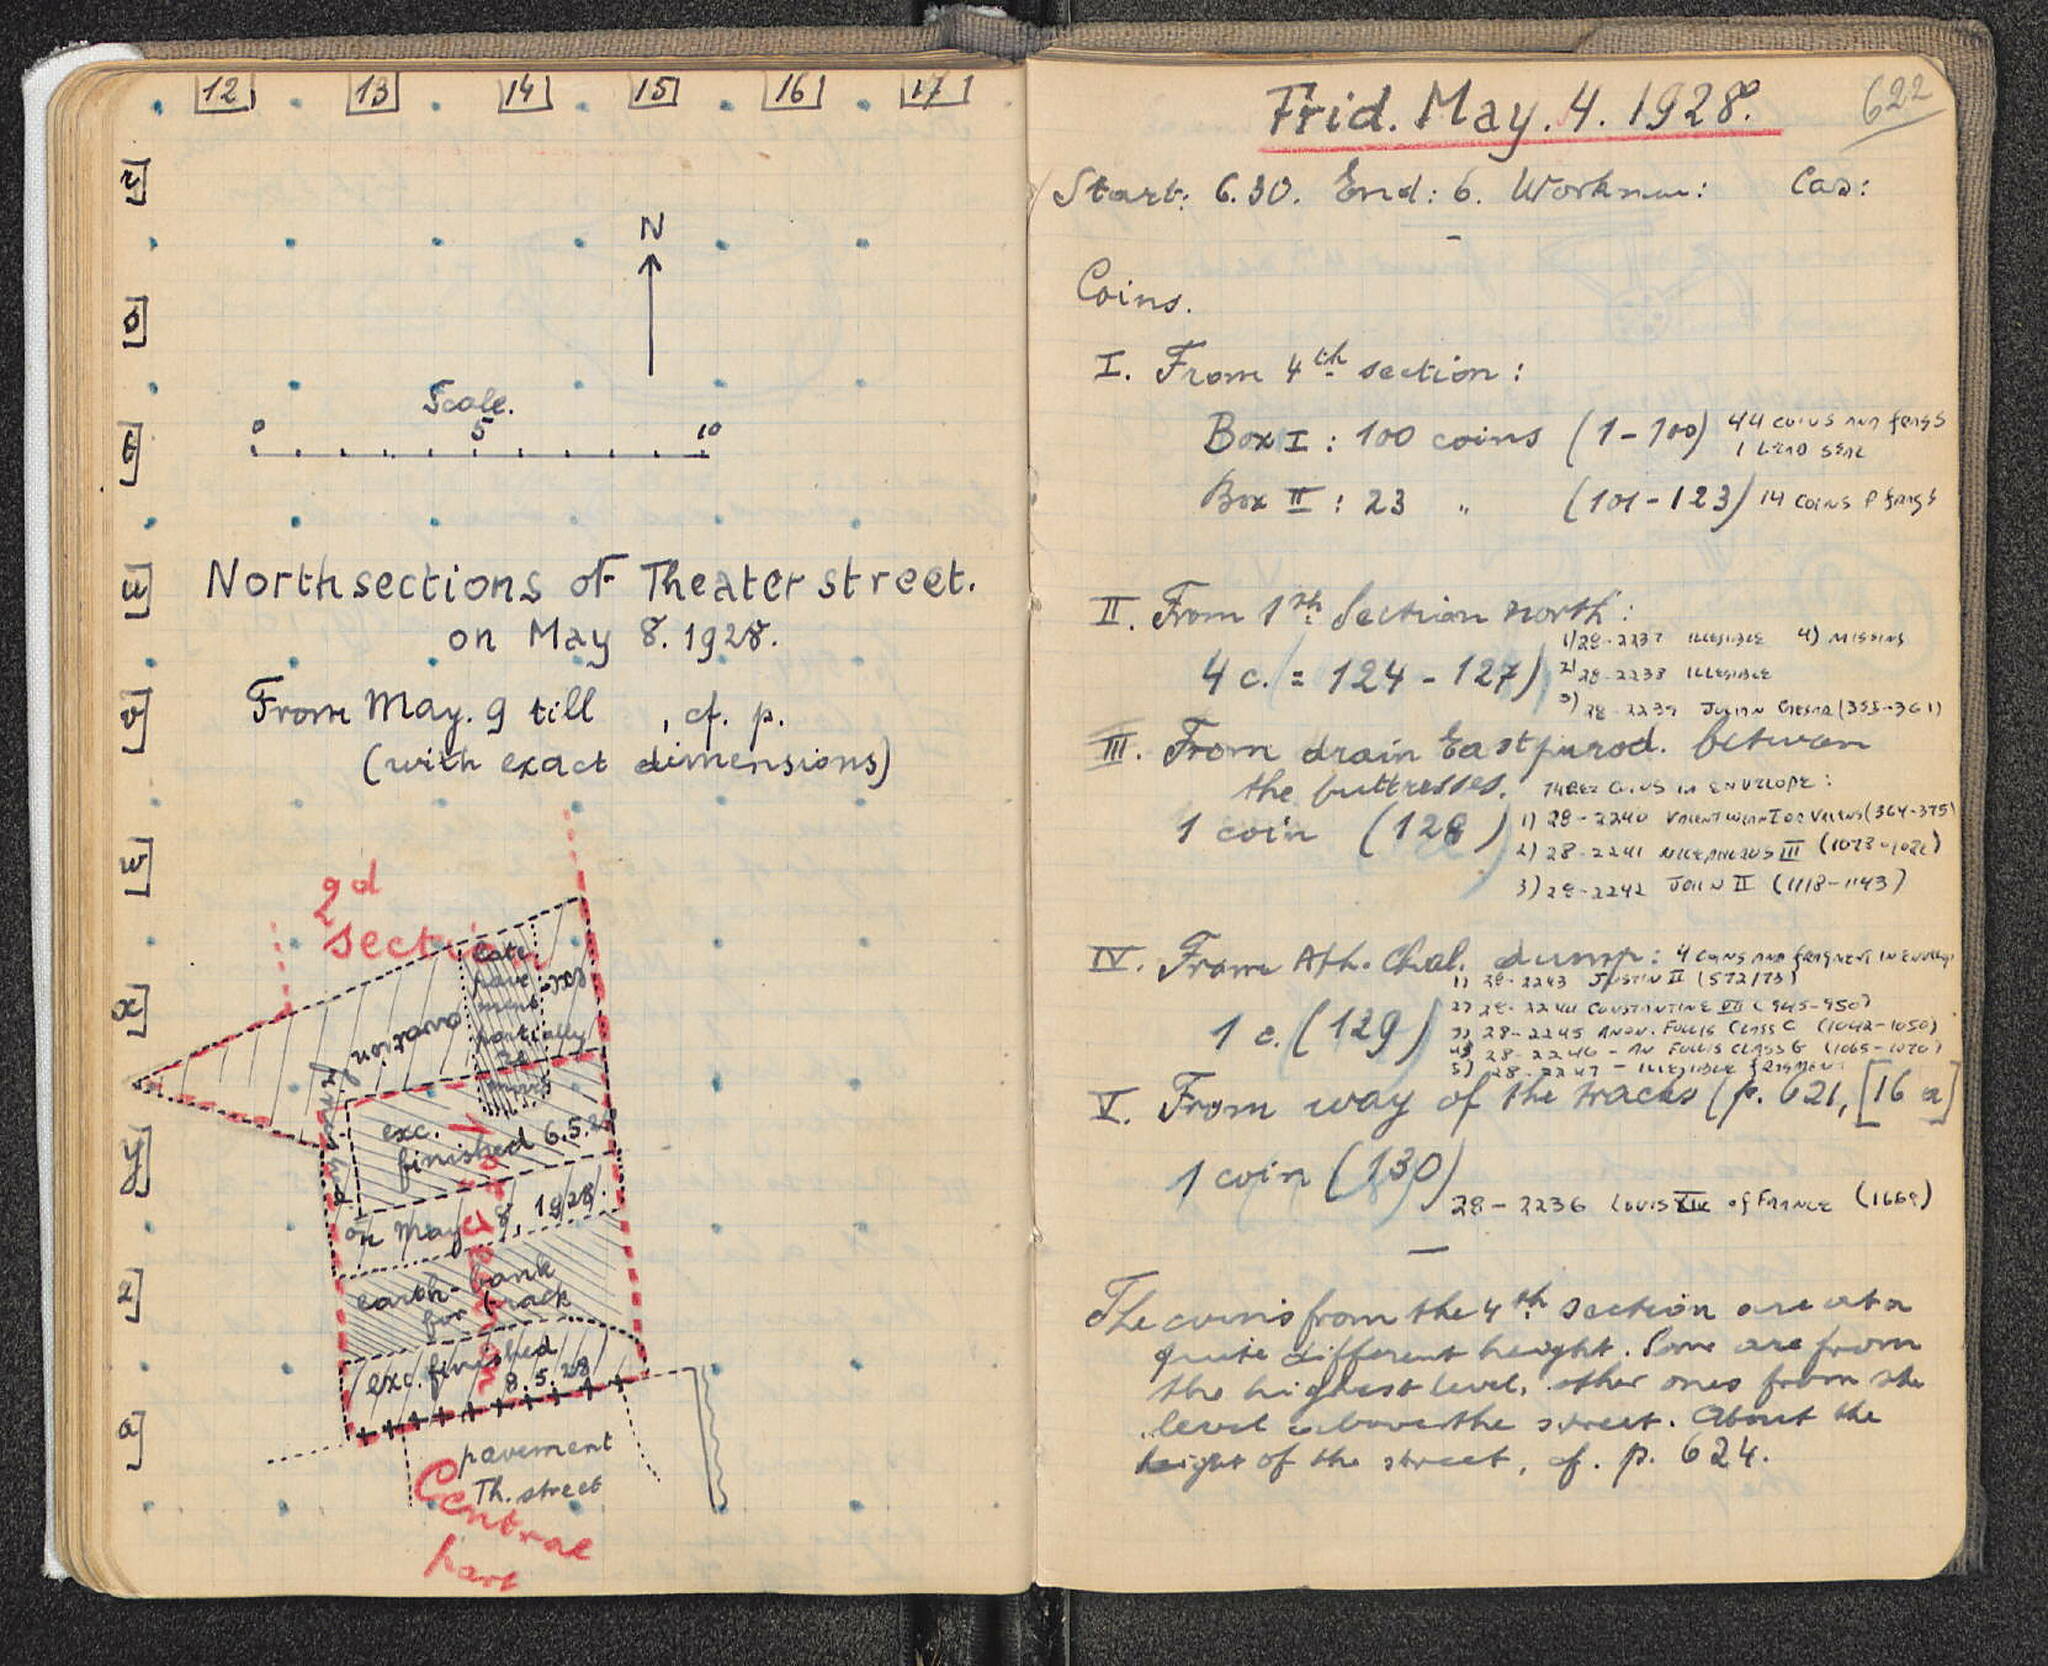 12 13 14 15 16 17
N
Scale.
0 5 10
r]
o]
t]
u]
v]
w]
x]
y]
z]
a]
North sections of Theater street.
on May 8. 1928.
From May. 9 till , cf. p.
(with exact dimensions)
2d
section
late
pave
ment
partially
re
moved
exc.
finished 6.5.28
on May 8, 1928.
earth-bank
for track
exc. finished
8.5.28
pavement
Th. street
Central
part
622
Frid. May. 4. 1928.
Start: 6.30. End: 6. Workmen: Cas:
Coins.
I. From 4th section:
Box I: 100 coins (1-100) 44 coins and frags
1 Lead seal
Box II: 23 " (101-123) 14 coins & frags
II. From 1th Section north:
1) 28-2237 illegible 4) missing
4 c. = 124-127) 2) 28-2238 illegible
3) 28-2239 Julian Caesar (355-361)
III. From drain East between
the buttresses. Three coins in envelope:
1 coin (128) 1) 28-2240 Valentinian I or Valens (364-375)
2) 28-2241 Nicephorus III
3) 28-2242 John II (1118-1143)
IV. From Ath. Chal. dump: 4 coins and fragment in envelope
1) 28-2243 Justin II (572/73)
1 c. (129) 2) 28-2244 Constantine VII (945-950)
3) 28-2245 Anon. Follis Class C (1042-1050)
4) 28-2246 - An Follis Class G (1065-1070)
5) 28-2247 - illegible fragment
V. From way of the tracks (p. 621, [16 a]
1 coin (130)
28-2236 Louis XIV of France
The coins from the 4th section are at a
quite different height. Some are from
the highest level, other ones from the
level above the street. About the
height of the street, cf. p. 624.